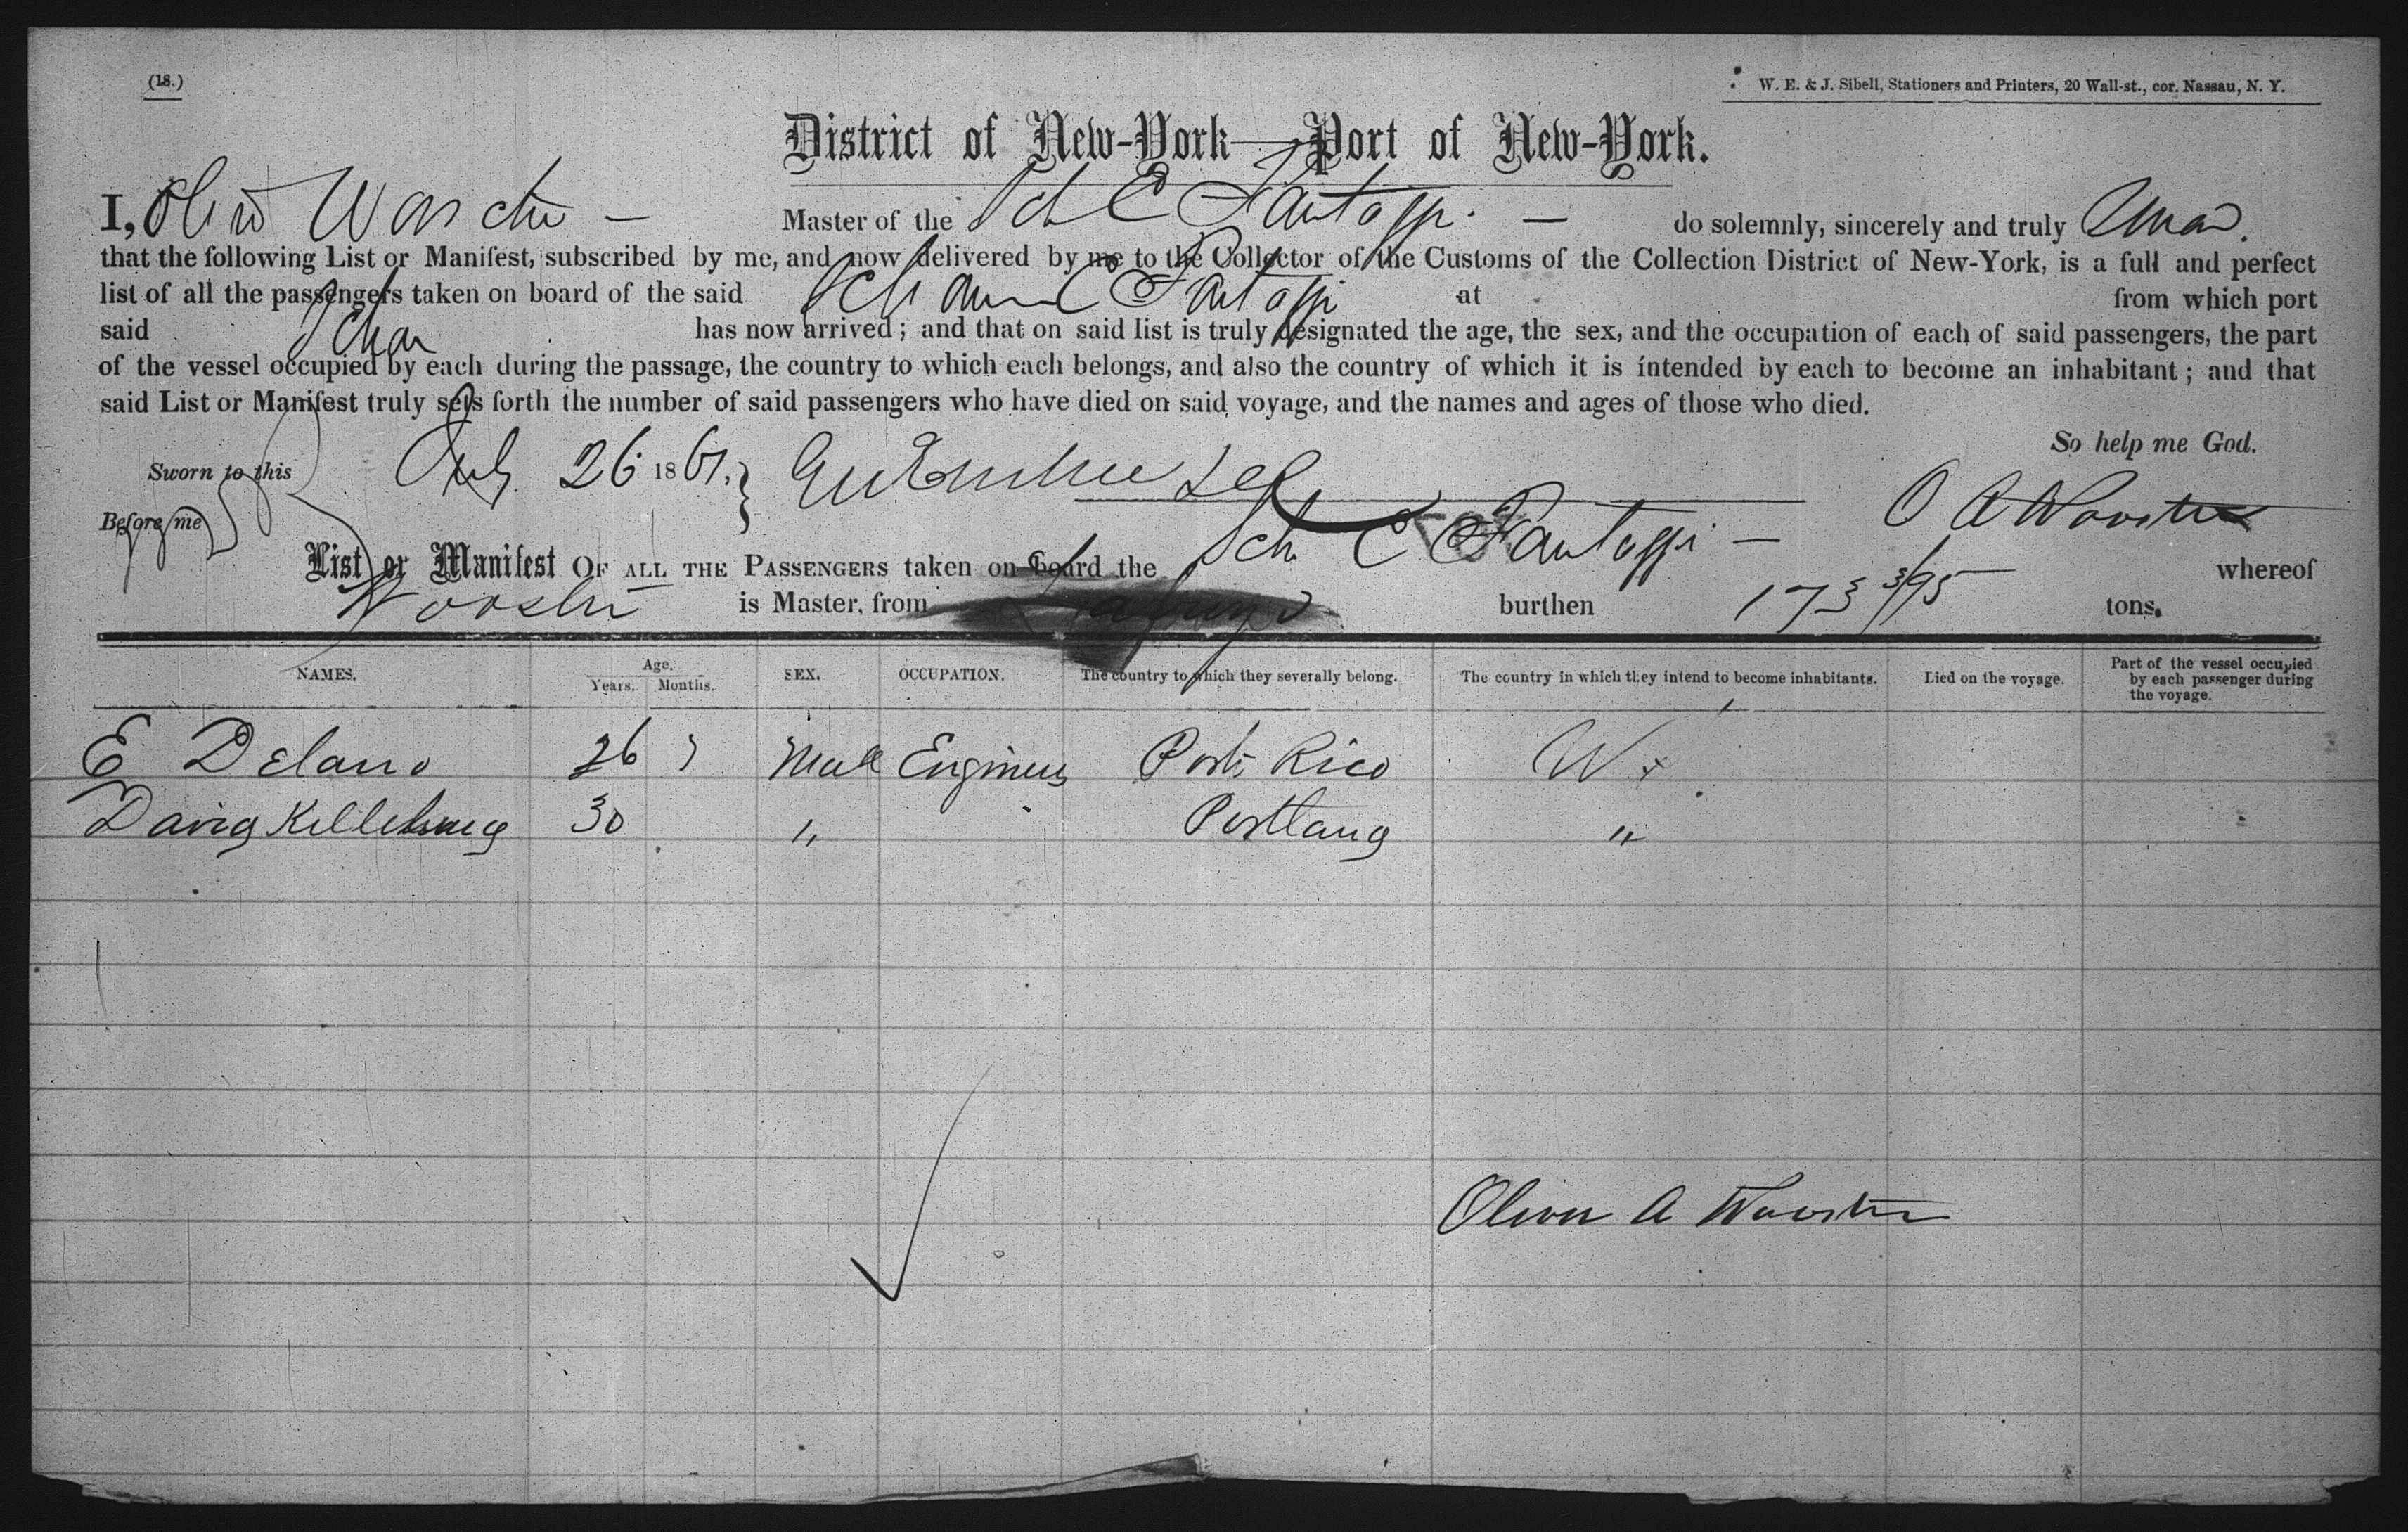 (18.)
W. E. & J. Sibell, Stationers and Printers, 20 Wall-st., cor. Nassau, N. Y.
District of New-York—Port of New-York.
I, Master of the Sch E Fantoggi do solemnly, sincerely and truly
that the following List or Manifest, subscribed by me, and now delivered by me to the Collector of the Customs of the Collection District of New-York, is a full and perfect
list of all the passengers taken on board of the said at from which port
said has now arrived; and that on said list is truly designated the age, the sex, and the occupation of each of said passengers, the part
of the vessel occupied by each during the passage, the country to which each belongs, and also the country of which it is intended by each to become an inhabitant; and that
said List or Manifest truly sets forth the number of said passengers who have died on said voyage, and the names and ages of those who died.
So help me God.
Sworn to this July 26 1861.
O A Wooster
Before me
List or Manifest OF ALL THE PASSENGERS taken on board the Sch E Fantoggi whereof
Wooster is Master, from burthen 173 3/95 tons.
NAMES. Age. Years. Months. SEX. OCCUPATION. The country to which they severally belong. The country in which they intend to become inhabitants. Died on the voyage. Part of the vessel occupied by each passenger during the voyage.
E Delano 26 Male Engineer Porto Rico
David 30 " Portland "
Oliver A Wooster